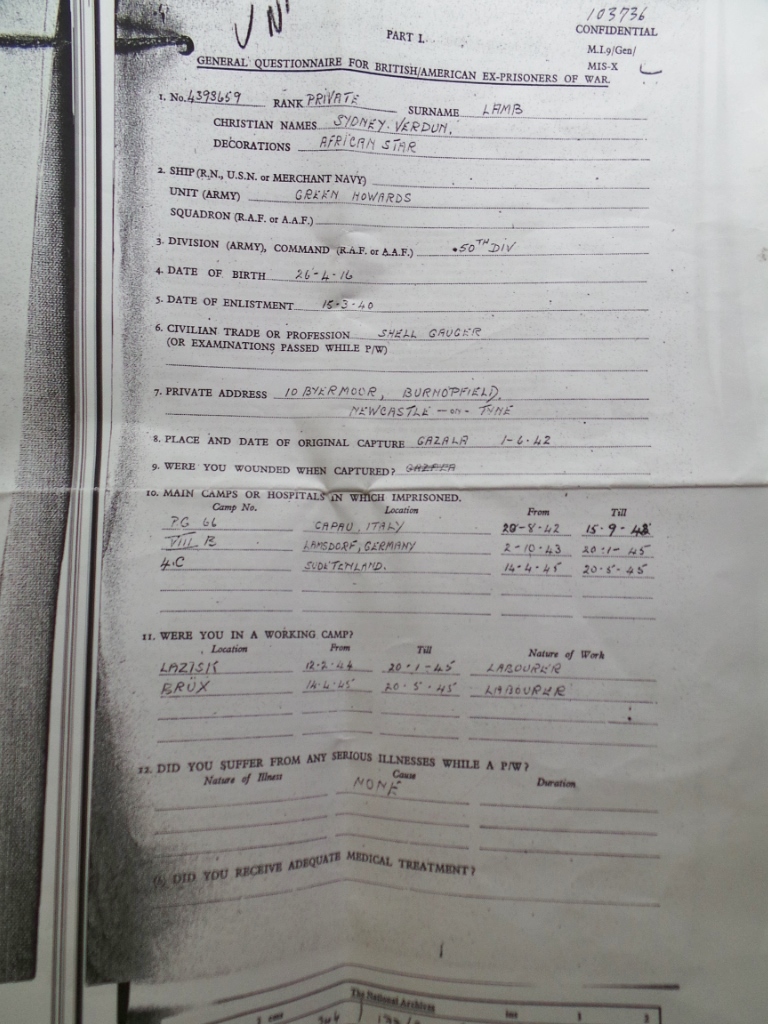 UN
103736
PART I.
CONFIDENTIAL
M.I.9/Gen/
MIS-X
GENERAL QUESTIONNAIRE FOR BRITISH/AMERICAN EX-PRISONERS OF WAR.
1. No. 4393659 RANK PRIVATE SURNAME LAMB
CHRISTIAN NAMES SYDNEY. VERDUN.
DECORATIONS AFRICAN STAR
2. SHIP (R.N., U.S.N. or MERCHANT NAVY)
UNIT (ARMY) GREEN HOWARDS
SQUADRON (R.A.F. or A.A.F.)
3. DIVISION (ARMY), COMMAND (R.A.F. or A.A.F.) 50TH DIV
4. DATE OF BIRTH 26-4-16
5. DATE OF ENLISTMENT 15-3-40
6. CIVILIAN TRADE OR PROFESSION SHELL GAUGER
(OR EXAMINATIONS PASSED WHILE P/W)
7. PRIVATE ADDRESS 10 BYERMOOR, BURNOPFIELD,
NEWCASTLE-on-TYNE
8. PLACE AND DATE OF ORIGINAL CAPTURE GAZALA 1-6-42
9. WERE YOU WOUNDED WHEN CAPTURED?
10. MAIN CAMPS OR HOSPITALS IN WHICH IMPRISONED.
Camp No. Location From Till
PG 66 CAPAU, ITALY 20-8-42 15-9-43
VIII B LAMSDORF, GERMANY 2-10-43 20-1-45
4.C SUDETENLAND. 14-4-45 20-5-45
11. WERE YOU IN A WORKING CAMP?
Location From Till Nature of Work
LAZISK 12-2-44 20-1-45 LABOURER
BRÜX 14-4-45 20-5-45 LABOURER
12. DID YOU SUFFER FROM ANY SERIOUS ILLNESSES WHILE A P/W?
Nature of Illness Cause Duration
NONE
DID YOU RECEIVE ADEQUATE MEDICAL TREATMENT?
The National Archives
cms ins 1 2